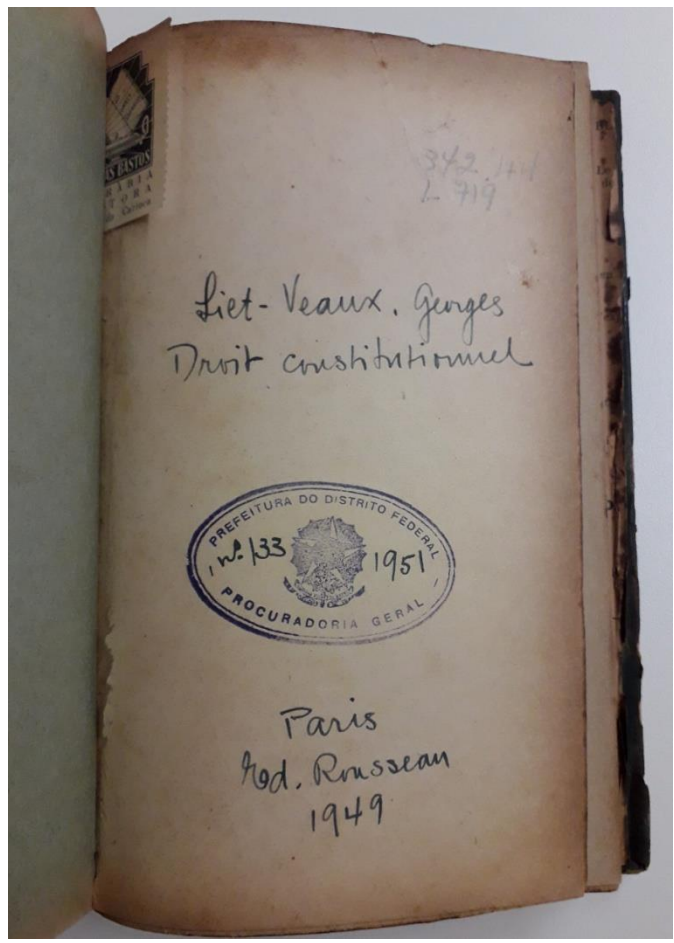 AS BASTOS
342.144
L 719
Liet-Veaux. Georges
Droit constitutionnel
PREFEITURA DO DISTRITO FEDERAL
nº 133 1951
PROCURADORIA GERAL
Paris
Ed. Rousseau
1949